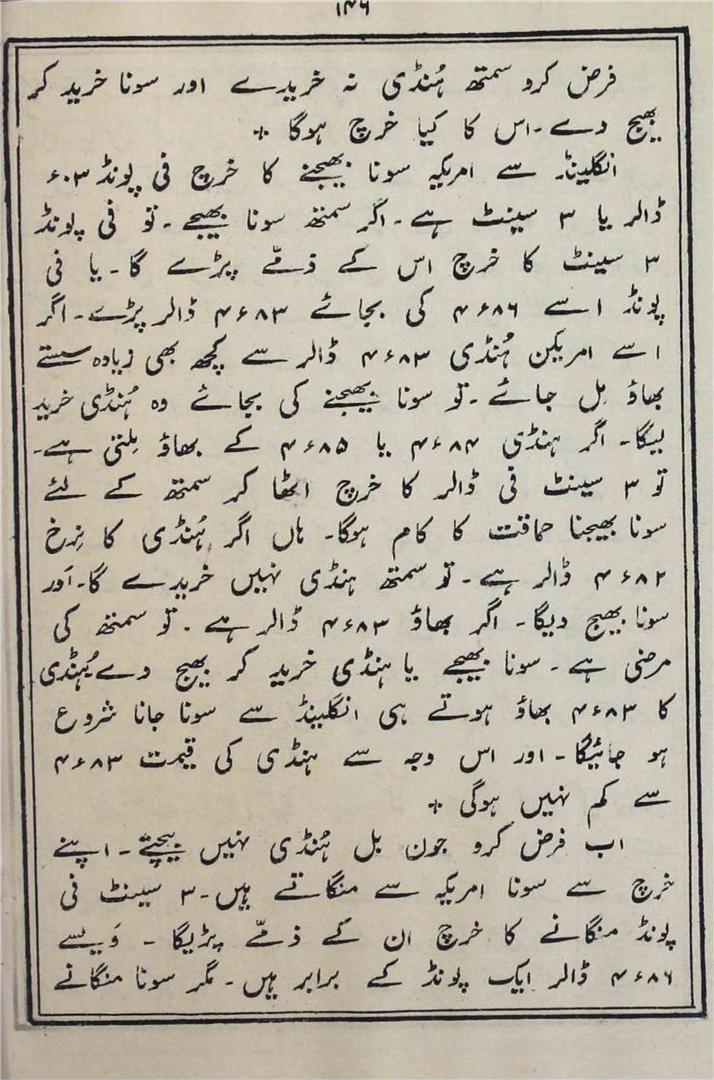 ۱۴۶
فرض کرو سمتھ ہُنڈی نہ خریدے اور سونا خرید کر
بھیج دے۔ اس کا کیا خرچ ہوگا +
انگلینڈ سے امریکہ سونا بھیجنے کا خرچ فی پونڈ ۰۳ء
ڈالر یا ۳ سینٹ ہے۔ اگر سمتھ سونا بھیجے۔ تو فی پونڈ
۳ سینٹ کا خرچ اس کے ذمّے پڑے گا۔ یا فی
پونڈ اسے ۸۶ء۴ کی بجائے ۸۳ء۴ ڈالر پڑے۔ اگر
اسے امریکن ہُنڈی ۸۳ء۴ ڈالر سے کچھ بھی زیادہ سستے
بھاؤ مِل جائے۔ تو سونا بھیجنے کی بجائے وہ ہُنڈی خرید
لیگا۔ اگر ہنڈی ۸۴ء۴ یا ۸۵ء۴ کے بھاؤ مِلتی ہے۔
تو ۳ سینٹ فی ڈالر کا خرچ اٹھا کر سمتھ کے لئے
سونا بھیجنا حماقت کا کام ہوگا۔ ہاں اگر ہُنڈی کا نِرخ
۸۲ء۴ ڈالر ہے۔ تو سمتھ ہنڈی نہیں خریدے گا۔ اَور
سونا بھیج دیگا۔ اگر بھاؤ ۸۳ء۴ ڈالر ہے۔ تو سمتھ کی
مرضی ہے۔ سونا بھیجے یا ہنڈی خرید کر بھیج دے۔ ہُنڈی
کا ۸۳ء۴ بھاؤ ہوتے ہی انگلینڈ سے سونا جانا شروع
ہو جائیگا۔ اور اس وجہ سے ہنڈی کی قیمت ۸۳ء۴
سے کم نہیں ہوگی +
اب فرض کرو جون بل ہُنڈی نہیں بیچتے۔ اپنے
خرچ سے سونا امریکہ سے منگاتے ہیں۔ ۳ سینٹ فی
پونڈ منگانے کا خرچ ان کے ذمّے پڑیگا۔ وَیسے
۸۶ء۴ ڈالر ایک پونڈ کے برابر ہیں۔ مگر سونا منگانے